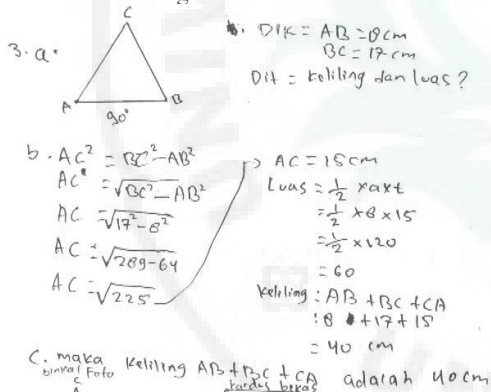 3. a.
C
A
B
90°
Dik = AB = 8 cm
BC = 17 cm
Dit = keliling dan luas?
b. AC² = BC² - AB²
AC = √BC² - AB²
AC = √17² - 8²
AC = √289 - 64
AC = √225
→ AC = 15 cm
Luas = 1/2 x a x t
= 1/2 x 8 x 15
= 1/2 x 120
= 60
Keliling : AB + BC + CA
: 8 + 17 + 15
= 40 cm
C. maka keliling AB + BC + CA adalah 40 cm
binkai foto
kardus bekas
C